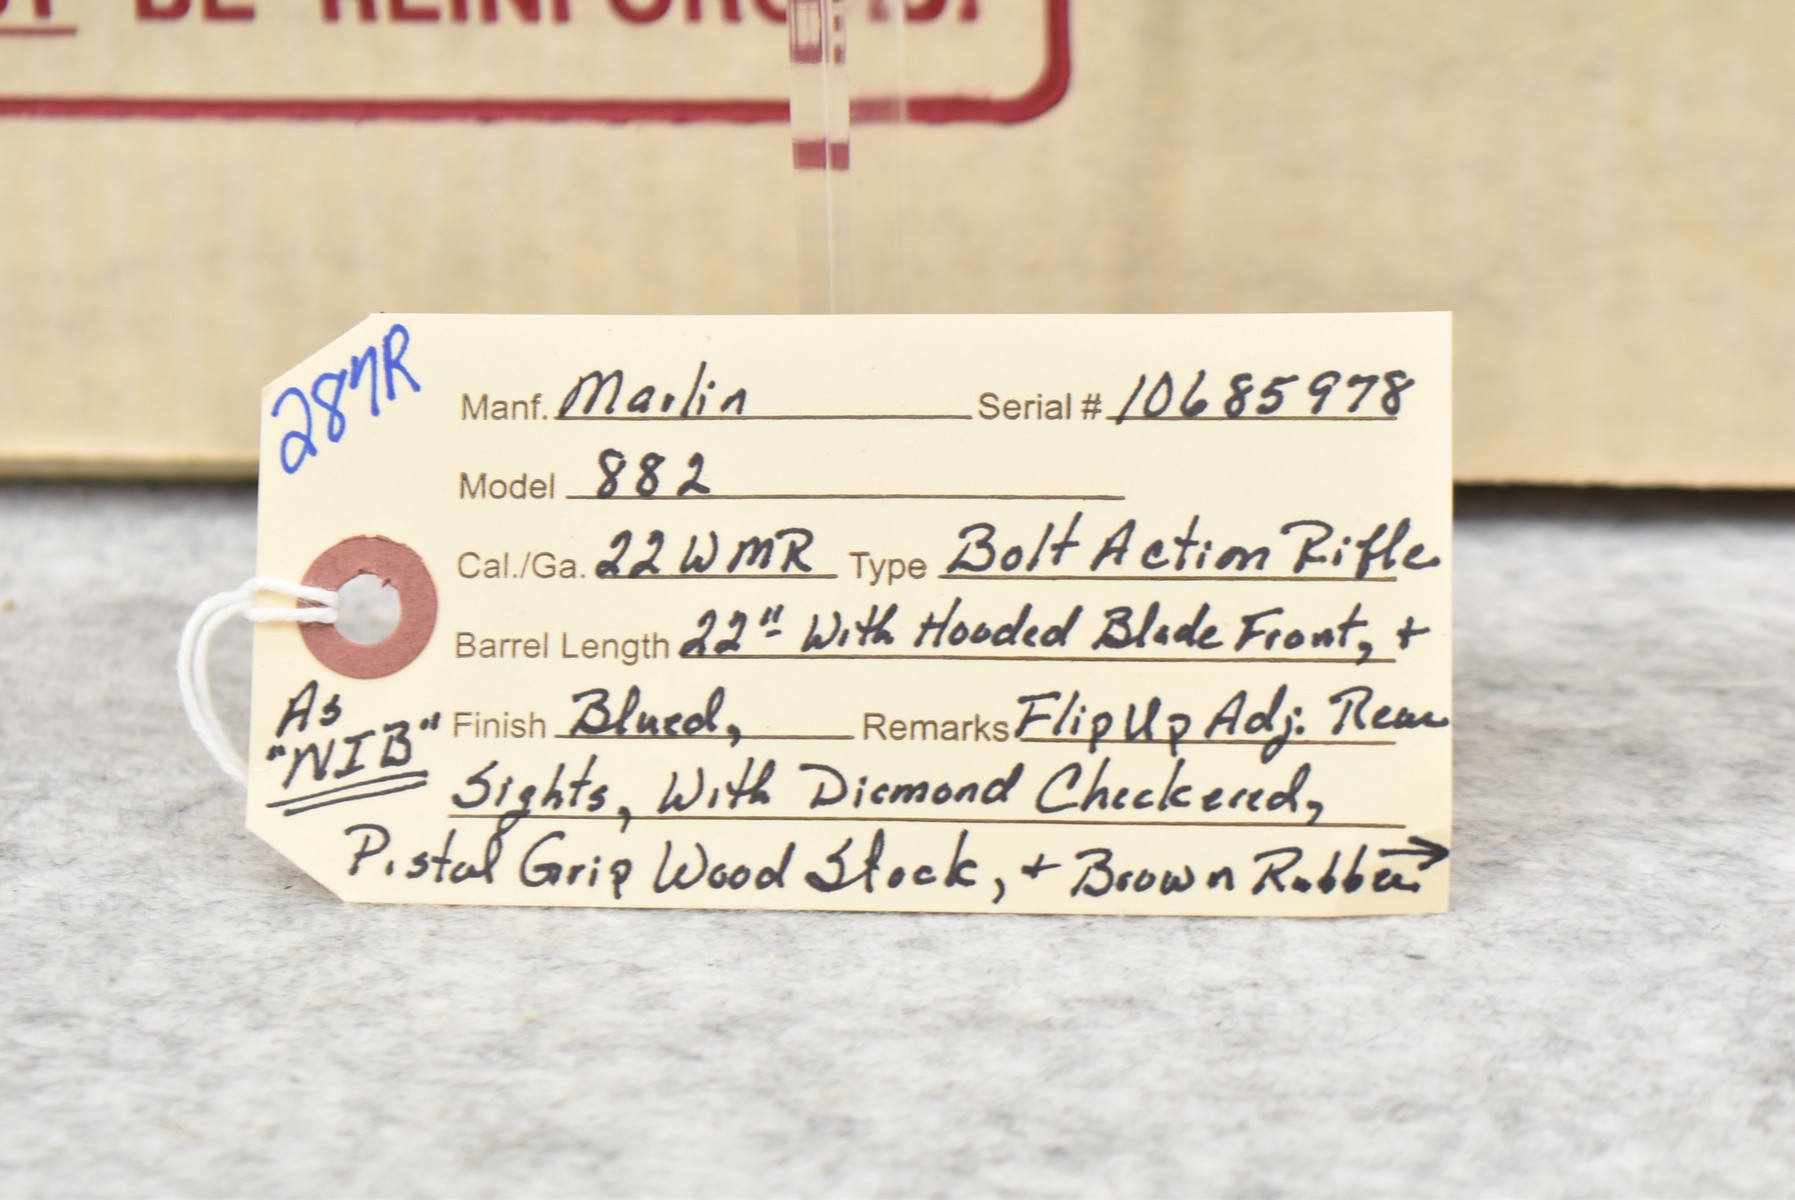 BE REINFORCED.
287R
Manf. Marlin Serial # 10685978
Model 882
Cal./Ga. 22 WMR Type Bolt Action Rifle
Barrel Length 22" With Hooded Blade Front, +
As "NIB"
Finish Blued, Remarks Flip Up Adj. Rear
Sights, With Diamond Checkered,
Pistol Grip Wood Stock, + Brown Rubber →